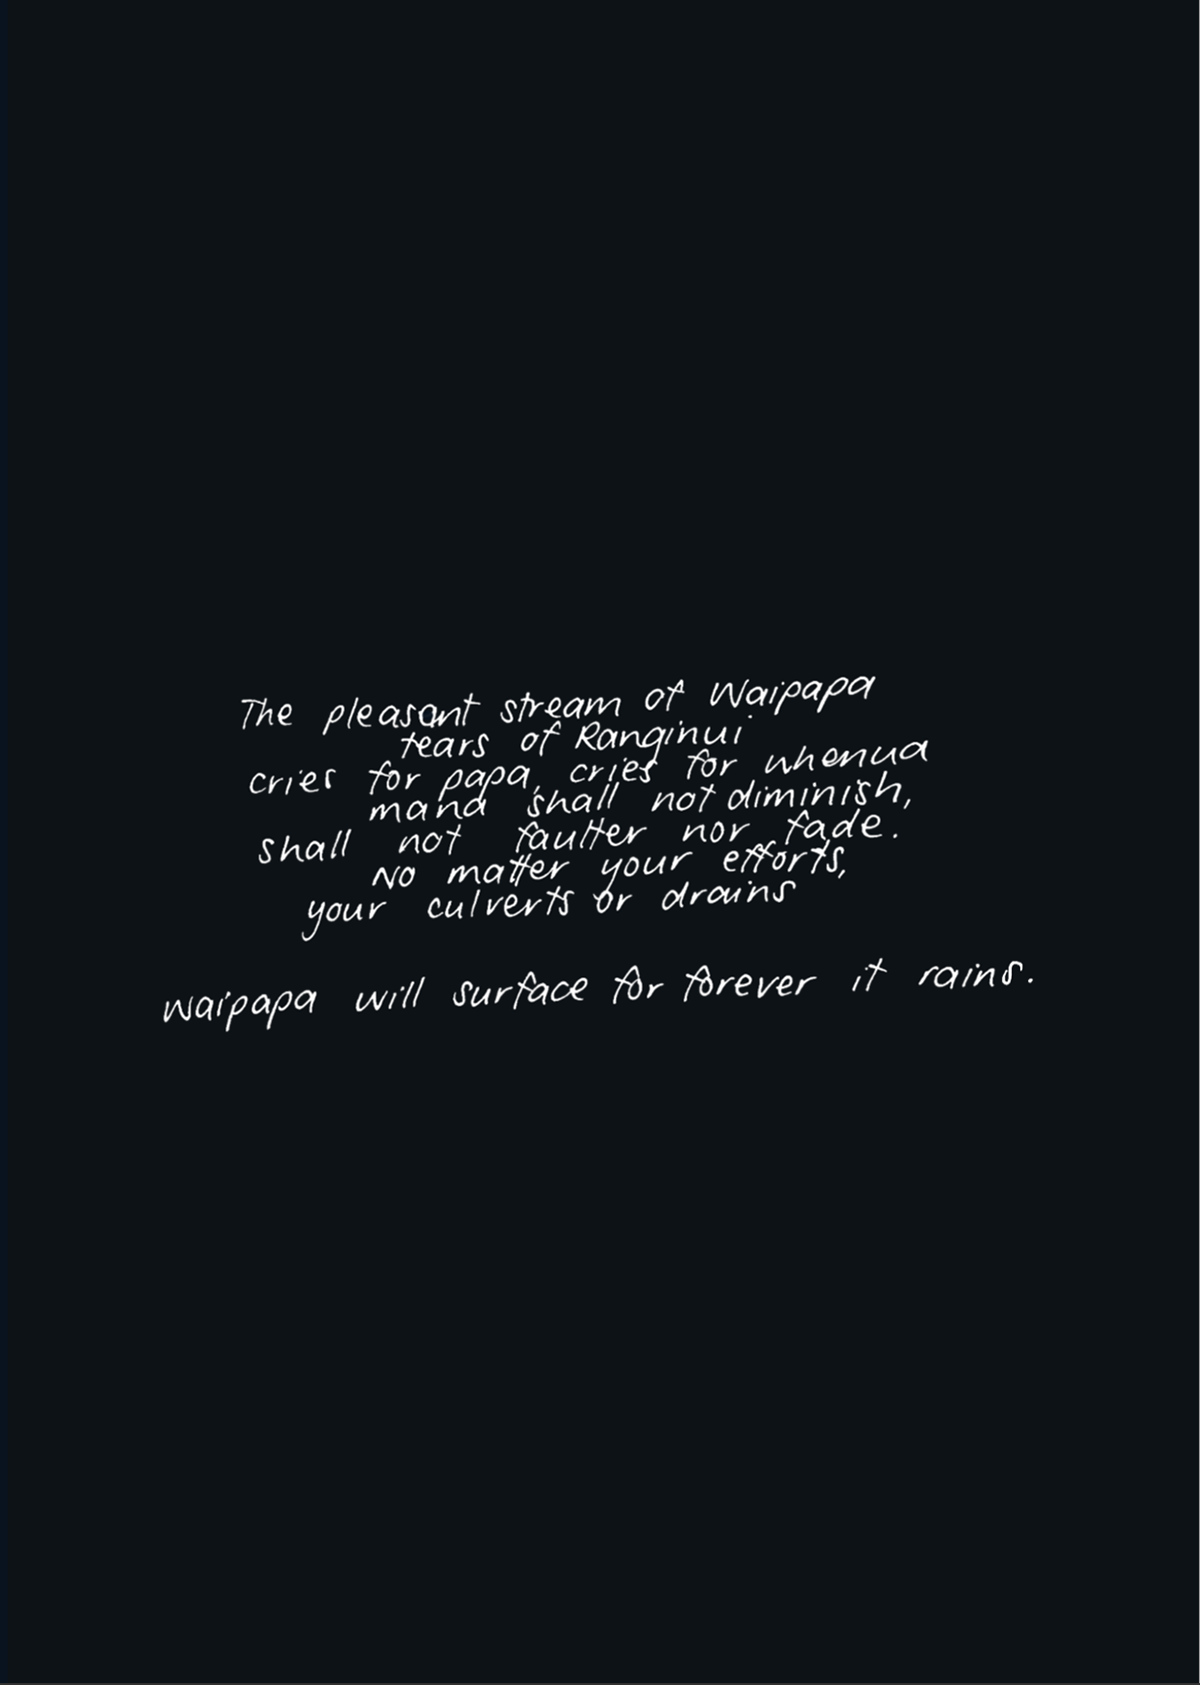 The pleasant stream of Waipapa
tears of Ranginui
cries for papa, cries for whenua
mana shall not diminish,
shall not faulter nor fade.
No matter your efforts,
your culverts or drains
waipapa will surface for forever it rains.